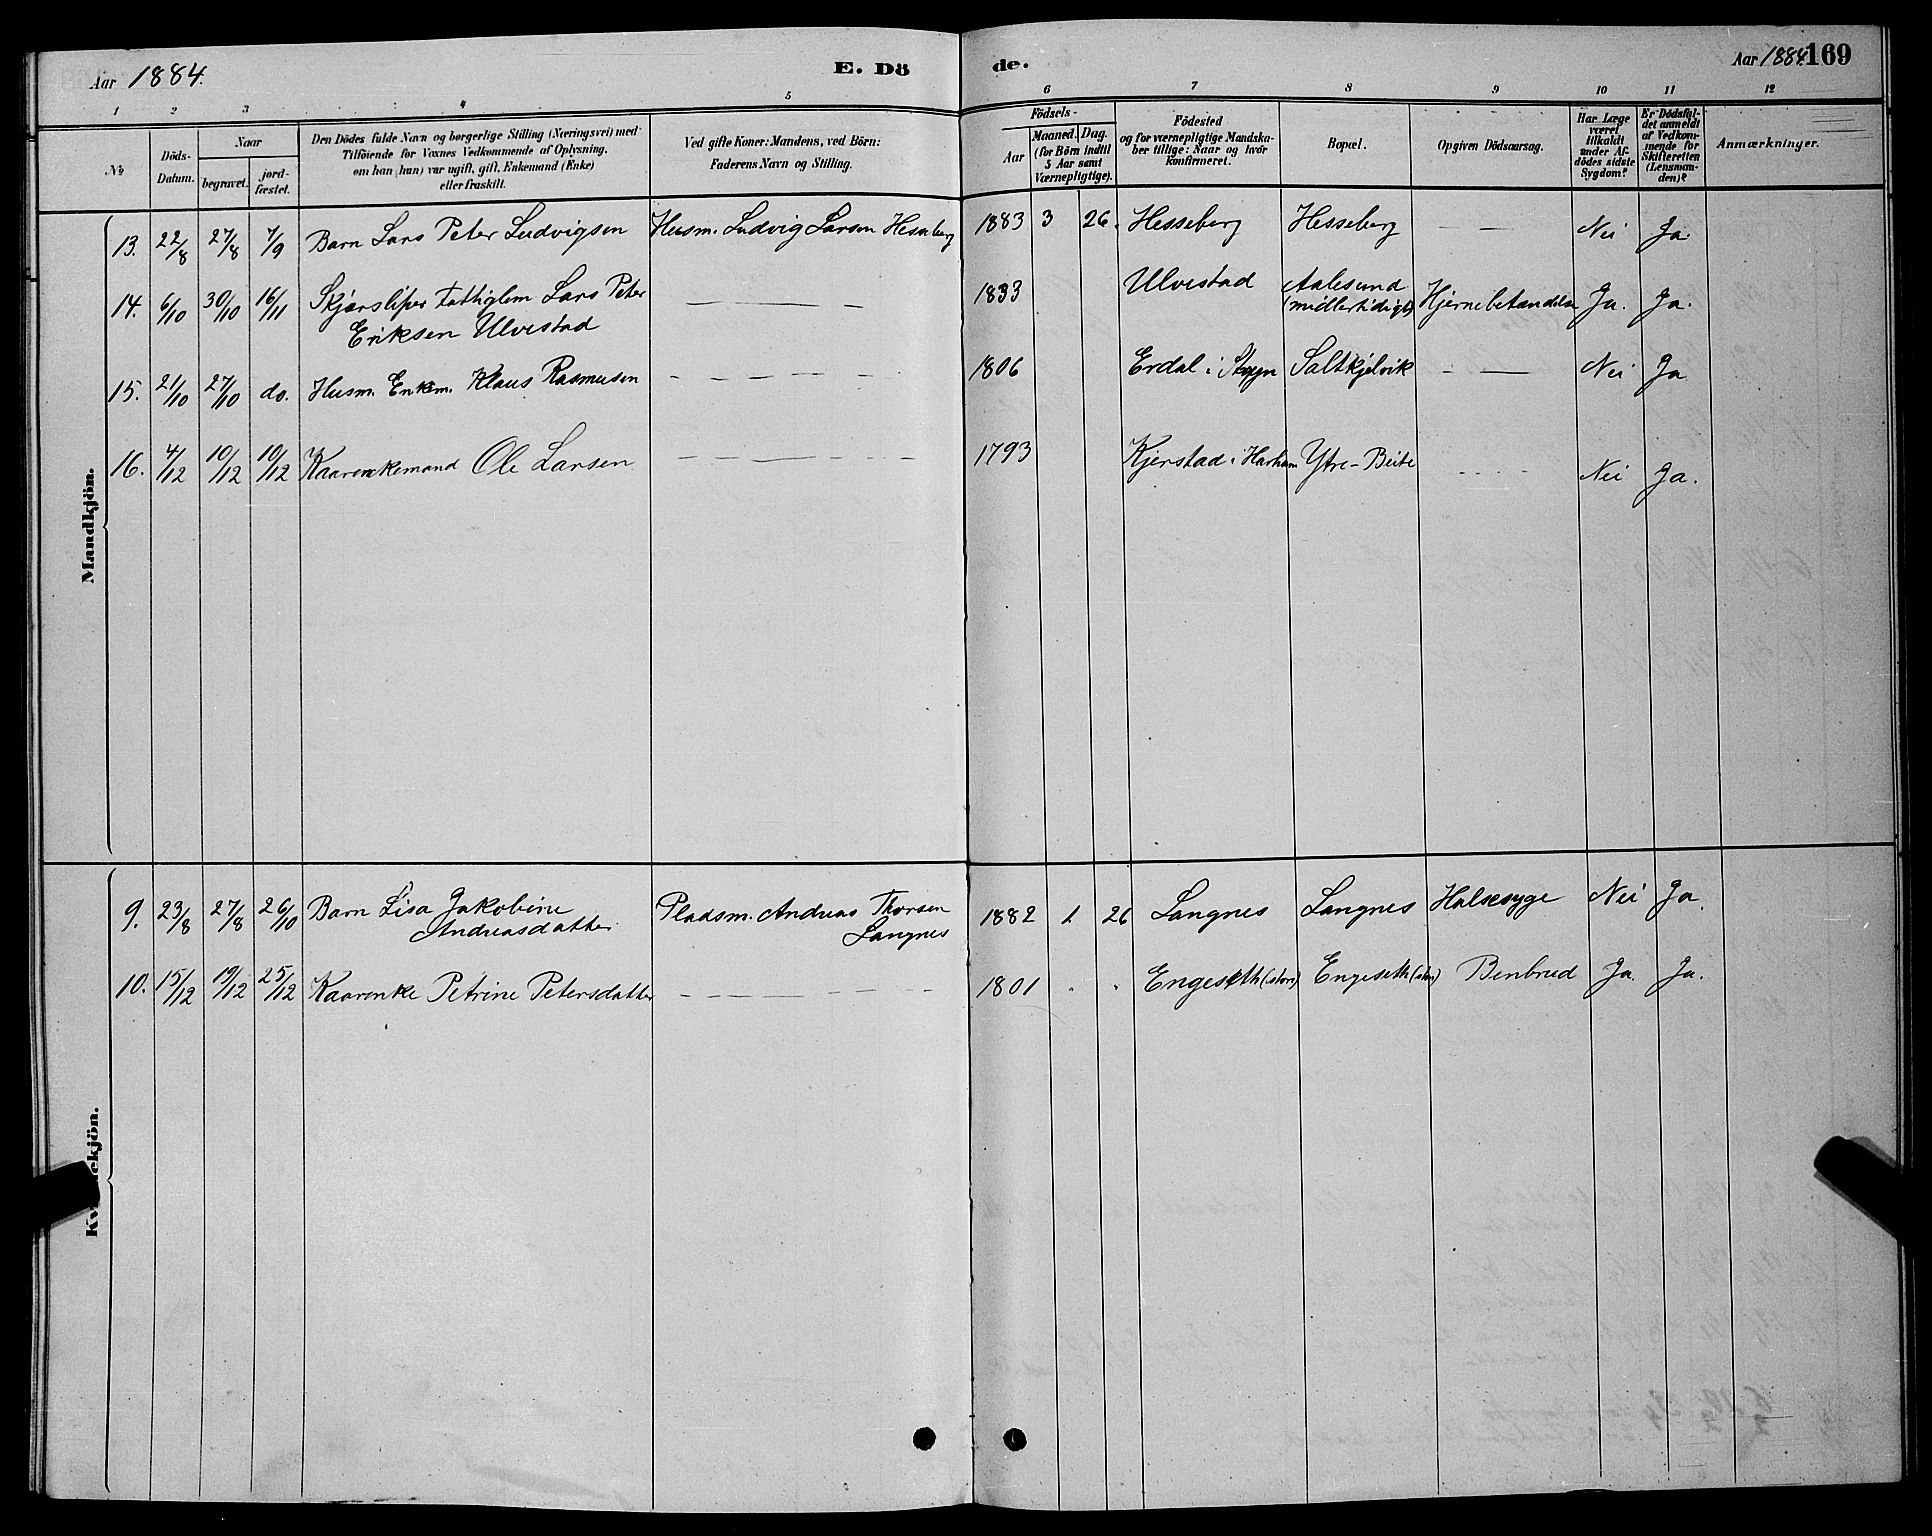 Aar 1884. E. Dö de. Aar 1884. 169
1 2 3 4 5 6 7 8 9 10 11 12
№
Döds-Datum.
Naar
begravet.
jord-fæstet.
Den Dödes fulde Navn og borgerlige Stilling (Næringsvei) med
Tilföiende for Voxnes Vedkommende af Oplysning,
om han (hun) var ugift, gift, Enkemand (Enke)
eller fraskilt.
Ved gifte Koner: Mandens, ved Börn:
Faderens Navn og Stilling.
Födsels-
Aar
Maaned. Dag.
(for Börn indtil
5 Aar samt
Værnepligtige).
Födested
og for værnepligtige Mandska-
ber tillige: Naar og hvor
Konfirmeret.
Bopæl.
Opgiven Dödsaarsag.
Har Læge
været
tilkaldt
under Af-
dödes sidste
Sygdom?
Er Dödsfal-
det anmeldt
af Vedkom-
mende for
Skifteretten
(Lensman-
den)?
Anmærkninger.
Mandkjön.
13. 22/8 27/8 7/9 Barn Lars Peter Ludvigsen Husm. Ludvig Larsen Hesseberg 1883 3 26. Hesseberg Hesseberg — — Nei Ja.
14. 6/10 30/10 16/11 Skjærsliper Fattiglem Lars Peter — — — 1833 Ulvestad Aalesund Hjernebetændelse Ja. Ja.
Eriksen Ulvestad (midlertidigt)
15. 21/10 27/10 do. Husm. Enkem. Klaus Rasmusen — — — 1806 Erdal i Stryn Saltkjelvik — — Nei Ja
16. 4/12 10/12 10/12 Kaarenkemand Ole Larsen — — — 1793 Kjerstad i Harham Ytre-Beite - - - - Nei Ja.
Kv
ekjön.
9. 23/8 27/8 26/10 Barn Lisa Jakobine Pladsm. Andreas Thorsen 1882 1 26 Langnes Langnes Halsesyge Nei Ja.
Andreasdatter Langnes
10. 15/12 19/12 25/12 Kaarenke Petrine Petersdatter — — — 1801 " " Engeseth (store) Engeseth (store) Benbrud Ja. Ja.